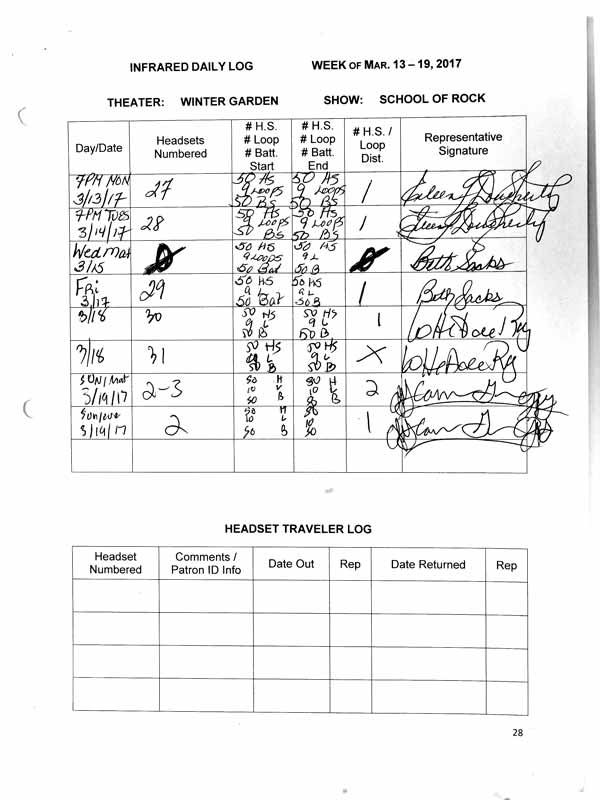 INFRARED DAILY LOG WEEK OF MAR. 13 – 19, 2017
THEATER: WINTER GARDEN SHOW: SCHOOL OF ROCK
Day/Date
Headsets
Numbered
# H.S.
# Loop
# Batt.
Start
# H.S.
# Loop
# Batt.
End
# H.S. /
Loop
Dist.
Representative
Signature
7PM MON
3/13/17
27
50 HS
9 Loops
50 BS
50 HS
9 Loops
50 BS
1
Eileen J Dougherty
7PM TUES
3/14/17
28
50 HS
9 Loops
50 BS
50 HS
9 Loops
50 BS
1
Dougherty
Wed Mat
3/15
0
50 HS
9 Loops
50 Bat
50 HS
9 L
50 B
0
Beth Sacks
Fri
3/17
29
50 HS
9 L
50 Bat
50 HS
9 L
50 B
1
Beth Sacks
3/18
30
50 HS
9 L
50 B
50 HS
9 L
50 B
1
3/18
31
50 HS
9 L
50 B
50 HS
9 L
50 B
X
SUN/Mat
3/19/17
2-3
50 H
10 L
50 B
50 H
10 L
50 B
2
Sun/eve
3/19/17
2
50 H
10 L
50 B
50
10
50
1
HEADSET TRAVELER LOG
Headset
Numbered
Comments /
Patron ID Info
Date Out
Rep
Date Returned
Rep
28